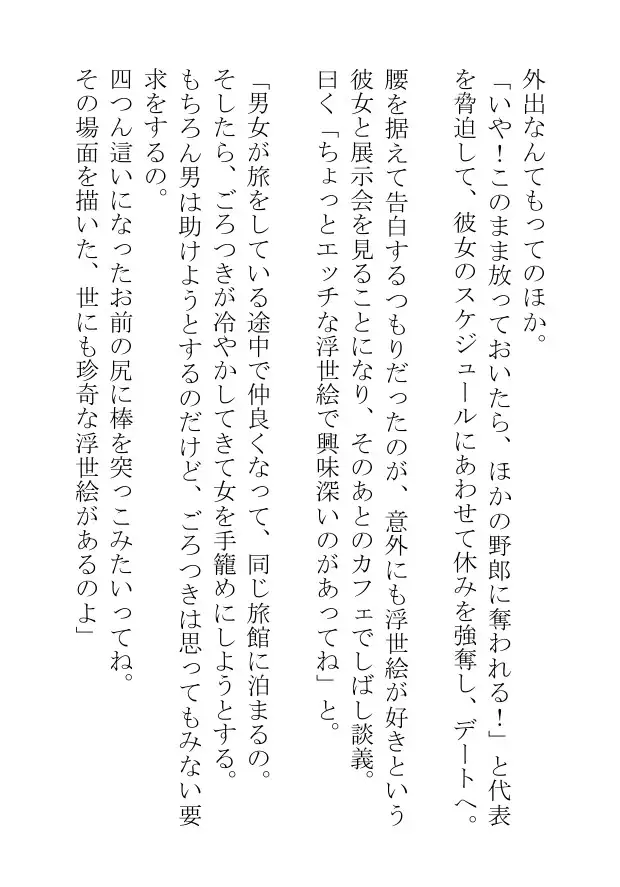 外出なんてもってのほか。
「いや！このまま放っておいたら、ほかの野郎に奪われる！」と代表
を脅迫して、彼女のスケジュールにあわせて休みを強奪し、デートへ。
腰を据えて告白するつもりだったのが、意外にも浮世絵が好きという
彼女と展示会を見ることになり、そのあとのカフェでしばし談義。
曰く「ちょっとエッチな浮世絵で興味深いのがあってね」と。
「男女が旅をしている途中で仲良くなって、同じ旅館に泊まるの。
そしたら、ごろつきが冷やかしてきて女を手籠めにしようとする。
もちろん男は助けようとするのだけど、ごろつきは思ってもみない要
求をするの。
四つん這いになったお前の尻に棒を突っこみたいってね。
その場面を描いた、世にも珍奇な浮世絵があるのよ」